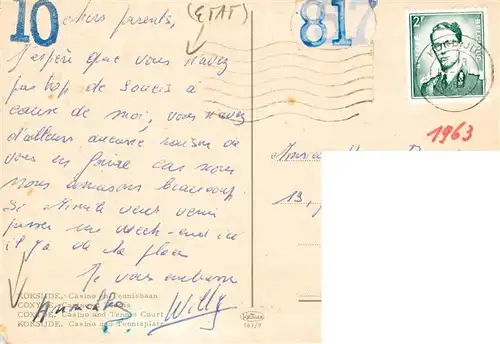 10
Chers parents,
(ETAT)
817
2F
J'espère que vous n'avez
pas trop de soucis à
cause de moi, vous n'avez
d'ailleurs aucune raison de
vous en faire car nous
nous amusons beaucoup.
Si veut venir
passer un week-end ici
il y a de la place
Je vous embrasse
Willy
1963
13,
KOKSIJDE, Casino en Tennisbaan
COXYDE, Casino et Tennis
COXYDE, Casino and Tennis Court
KOKSIJDE, Casino und Tennisplatz